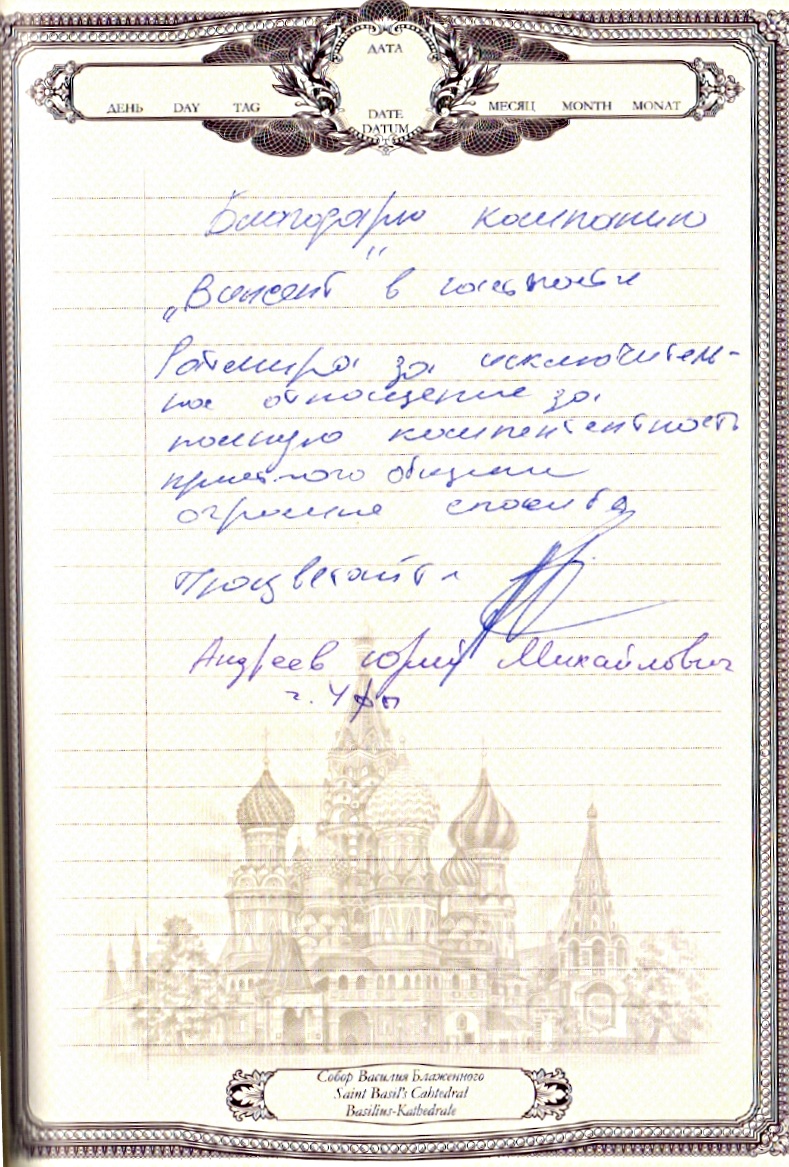 ДАТА
ДЕНЬ DAY TAG
МЕСЯЦ MONTH MONAT
DATE
DATUM
Благодарю компанию
„Визант" в
Ратмира за исключитель-
ное отношение за
полную компентентность
приятного общения
огромное спасибо
Процветайте
Андреев Юрий Михайлович
г. Уфы
Собор Василия Блаженного
Saint Basil's Cahtedral
Basilius-Kathedrale